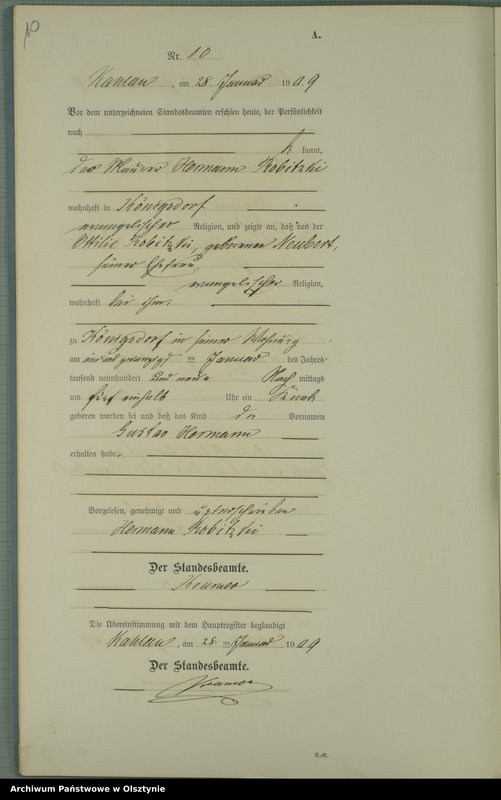 10
A.
Nr. 10
Kahlau, am 28. Januar 1909
Vor dem unterzeichneten Standesbeamten erschien heute, der Persönlichkeit
nach
kannt,
der Maurer Hermann Kobitzki
wohnhaft in Königsdorf
evangelischer Religion, und zeigte an, daß von der
Ottilie Kobitzki, geborene Neubert,
seiner Ehefrau,
evangelischer Religion,
wohnhaft bei ihm,
zu Königsdorf in seiner Wohnung
am einundzwanzigsten Januar des Jahres
tausend neunhundert und neun Nachmittags
um fünf einhalb Uhr ein Knabe
geboren worden sei und daß das Kind die Vornamen
Gustav Hermann
erhalten habe.
Vorgelesen, genehmigt und unterschrieben
Hermann Kobitzki
Der Standesbeamte.
Kramer
Die Übereinstimmung mit dem Hauptregister beglaubigt
Kahlau, am 28. Januar 1909
Der Standesbeamte.
Kramer
Archiwum Państwowe w Olsztynie